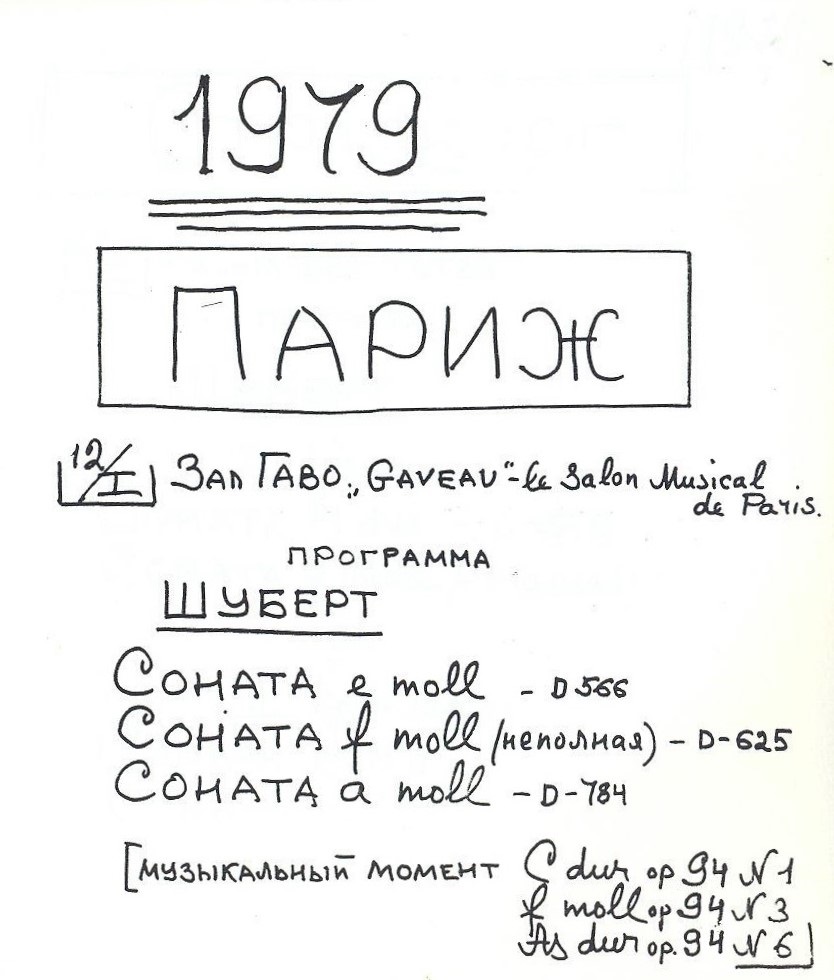 1979
ПАРИЖ
12/I ЗАЛ ГАВО „GAVEAU" - le Salon Musical
de Paris.
ПРОГРАММА
ШУБЕРТ
СОНАТА e moll - D 566
СОНАТА f moll (неполная) - D-625
СОНАТА a moll - D-784
[МУЗЫКАЛЬНЫЙ МОМЕНТ C dur op 94 N 1
f moll op 94 N 3
As dur op. 94 N 6]